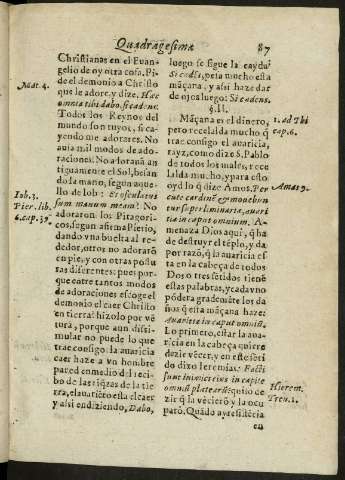 Quadragesima 87
Christianas en el Euan-
gelio de oy otra cosa. Pi-
de el demonio a Christo
que le adore, y dize. Hæc
omnia tibi dabo, si cadens.
Todos los Reynos del
mundo son tuyos, si ca-
yendo me adorares. No
auia mil modos de ado-
raciones. No adoraua an
tiguamente el Sol, besan
do la mano, segun aque-
llo de Iob: Et osculatus
sum manum meam? No
adoraron los Pitagori-
cos, segun afirma Pierio,
dando vna buelta al re-
dedor, otros no adorarō
en pie, y con otras postu
ras diferentes: pues por-
que entre tantos modos
de adoraciones escoge el
demonio el caer Christo
en tierra? hizolo por vē
tura, porque aun dissi-
mular no puede lo que
trae consigo la auaricia
caer haze a vn hombre
pared en medio del reci-
bo de las riq̄zas de la tie
rra, el auariēto esta el caer
y assi en diziendo, Dabo,
Mat. 4.
Iob. 3.
Pier. lib.
6. cap. 37.
luego se sigue la caydu
Si cadēs, pesa mucho esta
māçana, y assi haze dar
de ojos luego: Si cadens.
§. II.
Māçana es el dinero,
pero recelalda mucho q̄
trae consigo el auaricia,
rayz, como dize S. Pablo
de todos los males, rece
lalda mucho, y para esto
oyd lo q̄ dize Amos. Per
cute cardinē & mouebun
tur superliminaria, auari
tia in caput omnium. A-
menaza Dios aqui, q̄ ha
de destruyr el tēplo, y da
por razō, q̄ la auaricia es
ta en la cabeça de todos
Dos o tres setidos tienē
estas palabras, y cada vno
pōdera grādemēte los da
ños q̄ esta māçana haze:
Auaritia in caput omniū.
Lo primero, estar la aua-
ricia en la cabeça quiere
dezir vēcer, y en este seti
do dixo Ieremias: Facti
sunt inimici eius in capite
omniū platearū: quiso de
zir q̄ la vēcierō y la ocu
parō. Quādo ay resistēcia
en
1. ad Thi
cap. 6.
Amos 9.
Hierem.
Tren. 1.